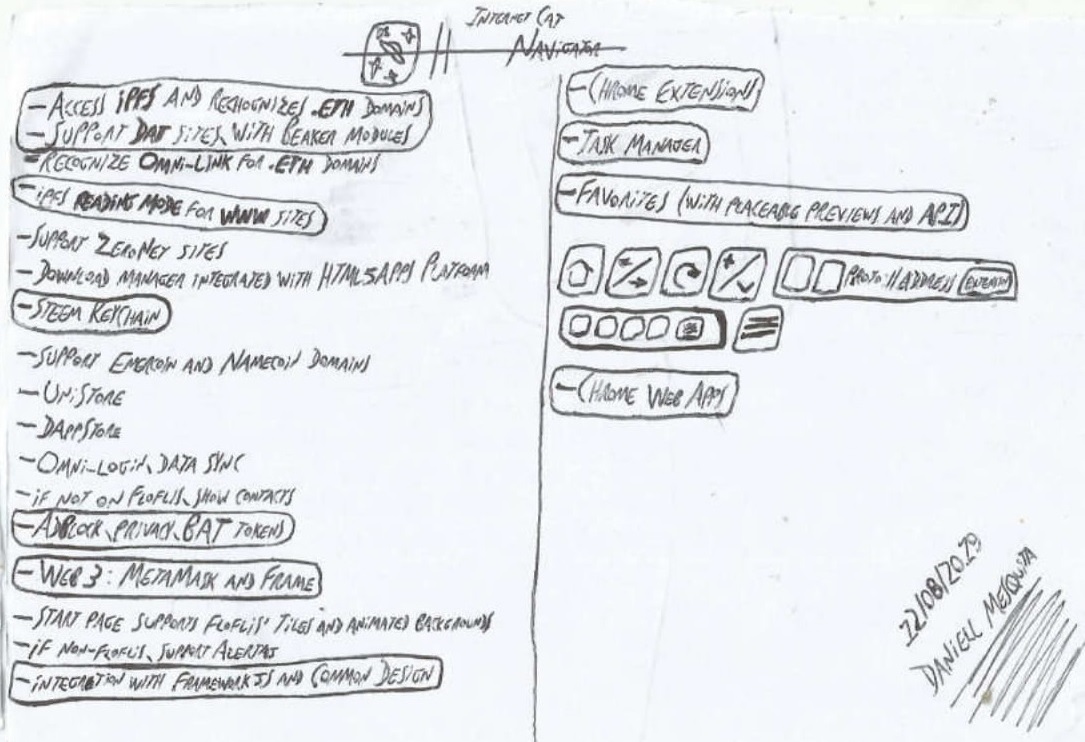 INTERNET CAT
NAVIGATOR
- ACCESS iPFS AND RECHOGNIZES .ETH DOMAINS
- SUPPORT DAT SITES, WITH BEAKER MODULES
- RECOGNIZE OMNI-LINK FOR .ETH DOMAINS
- iPFS READING MODE FOR WWW SITES
- SUPPORT ZERONET SITES
- DOWNLOAD MANAGER INTEGRATED WITH HTML5APPS PLATFORM
- STEEM KEYCHAIN
- SUPPORT EMERCOIN AND NAMECOIN DOMAINS
- UNISTORE
- DAPPSTORE
- OMNI-LOGIN, DATA SYNC
- iF NOT ON FLOFLIS, SHOW CONTACTS
- ADBLOCK, PRIVACY, BAT TOKENS
- WEB 3: METAMASK AND FRAME
- START PAGE SUPPORTS FLOFLIS' TILES AND ANIMATED BACKGROUNDS
- iF NON-FLOFLIS, SUPPORT ALERTAS
- iNTEGRATION WITH FRAMEWORKJS AND COMMON DESIGN
- CHROME EXTENSIONS
- TASK MANAGER
- FAVORITES (WITH PLACEABLE PREVIEWS AND API)
PROTO://ADDRESS
- CHROME WEB APPS
22/08/2019
DANIELL MESQUITA